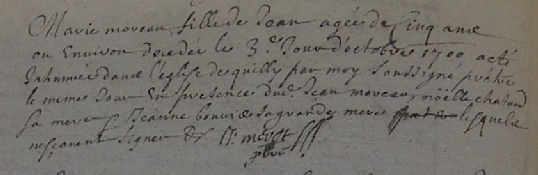 Marie moreau fille de Jean agée de Cinq ans
ou Environ decedée le 3e Jour d'octobre 1700 a eté
Inhumée dans l'eglise de quilly par moy Soussigné prêtre
le meme Jour En presence dud. Jean moreau, noëlle chataud
sa mere Jeanne sa grande mere lesquels
ne sçavent signer